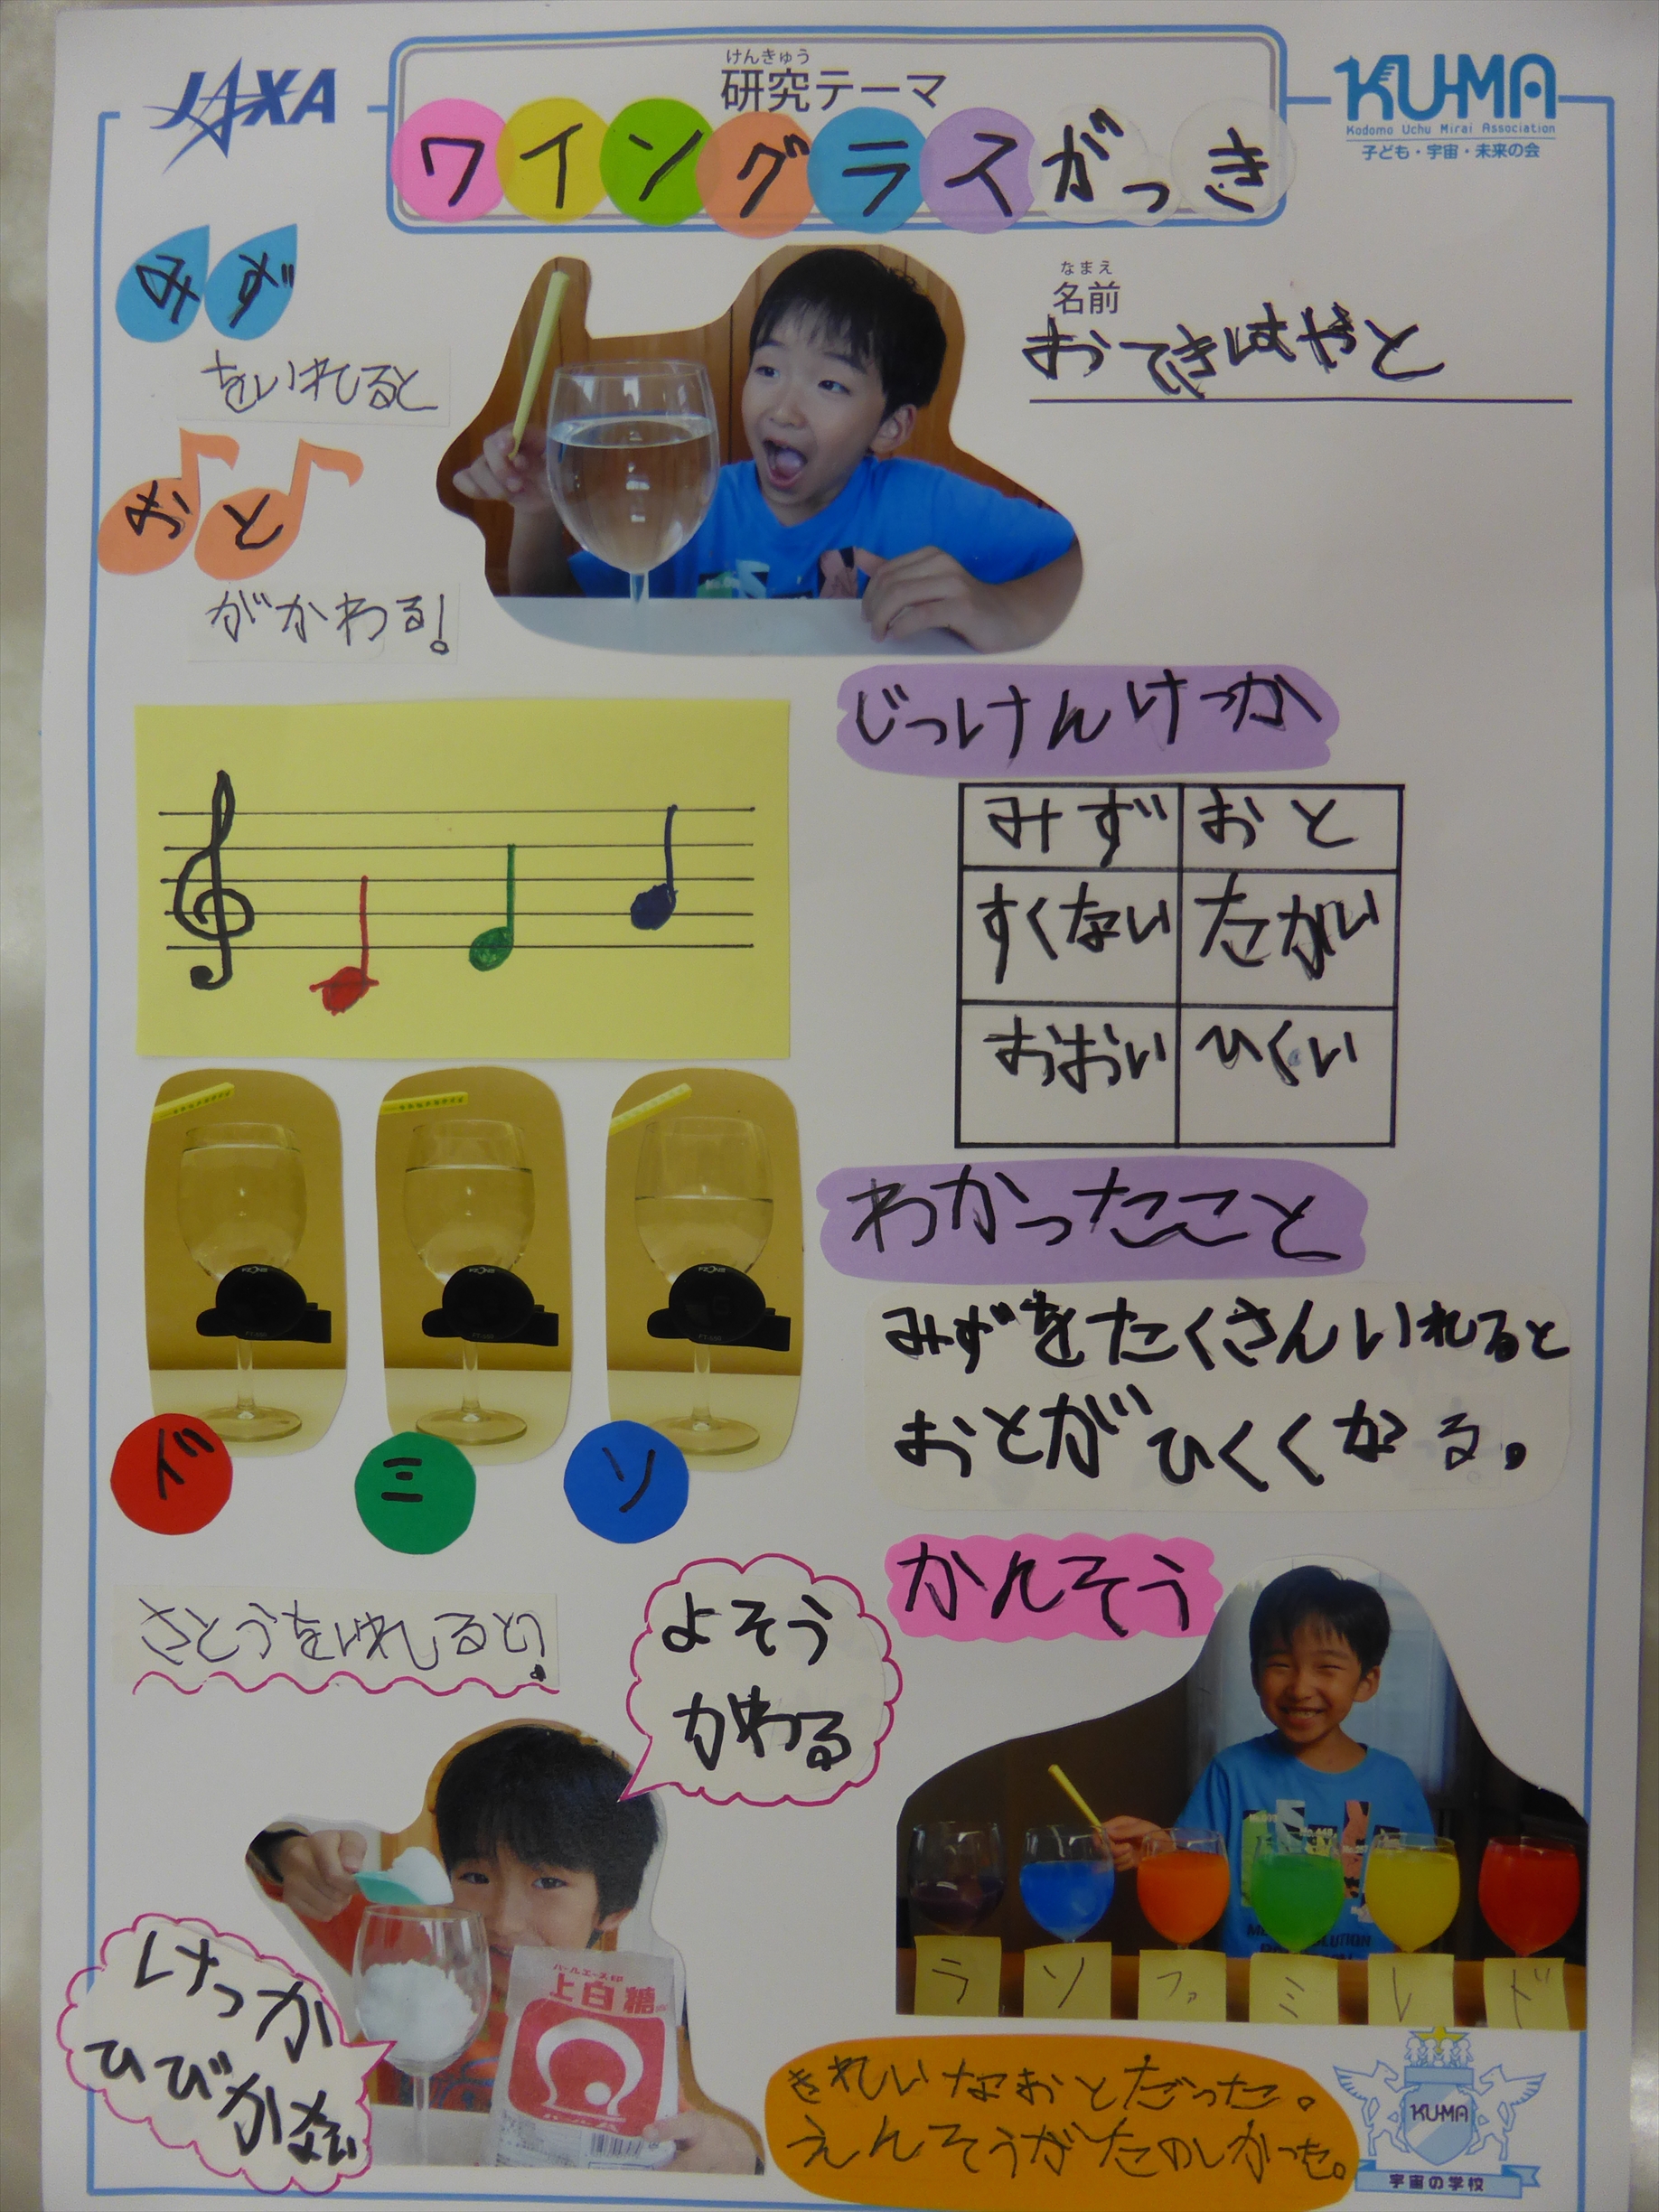 JAXA
けんきゅう
研究テーマ
ワイングラスがっき
KU-MA
Kodomo Uchu Mirai Association
子ども・宇宙・未来の会
みず
をいれると
おと
がかわる!
なまえ
名前
おてきはやと
じっけんけっか
みず おと
すくない たかい
おおい ひくい
ド ミ ソ
わかったこと
みずをたくさんいれると
おとがひくくなる。
さとうをいれると?
よそう
かわる
けっか
ひびかない
パールエース印
上白糖
かんそう
ラ ソ ファ ミ レ ド
きれいなおとだった。
えんそうがたのしかった。
KU-MA
宇宙の学校